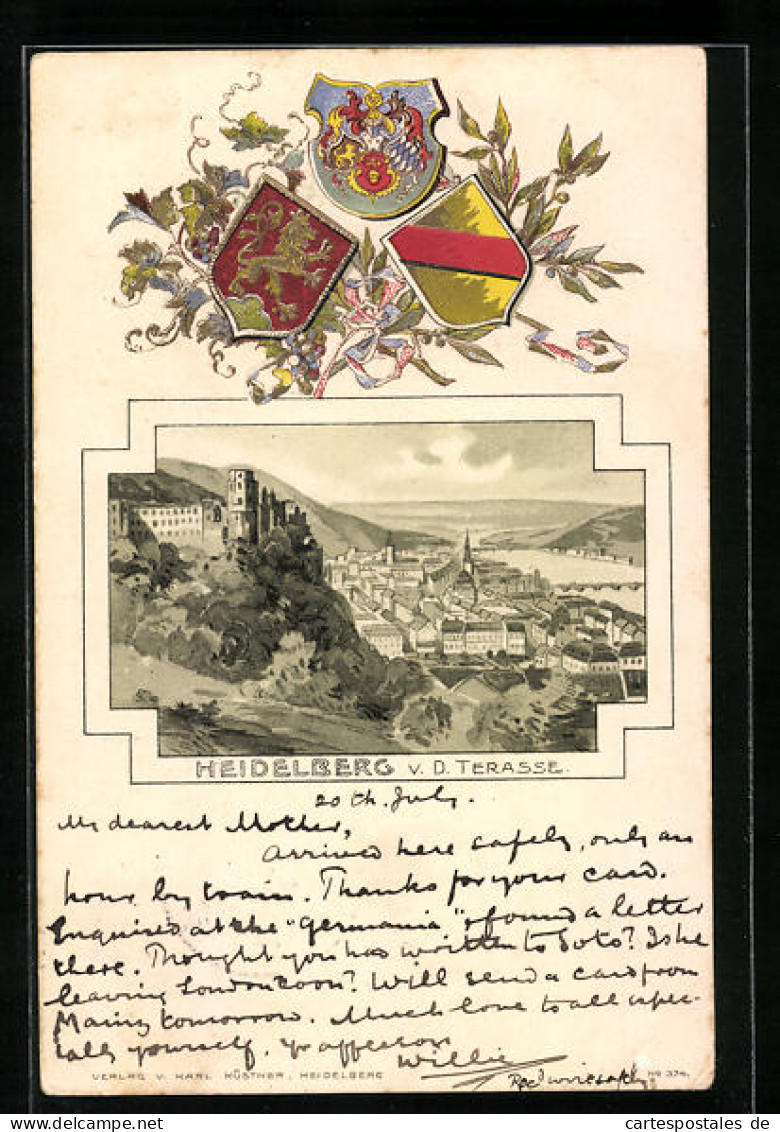 HEIDELBERG V. D. TERASSE.
20th. July.
My dearest Mother,
Arrived here safely, only an
hour by train. Thanks for your card.
Enquired at the "Germania" & found a letter
there. Thought you has written to Soto? Is he
leaving London soon? Will send a card from
Mainz tomorrow. Much love to all espec-
ially yourself. Yr affec son
Willie
Recd wire safely
VERLAG V. KARL KÜSTNER, HEIDELBERG
No 374.
cartespostales.de